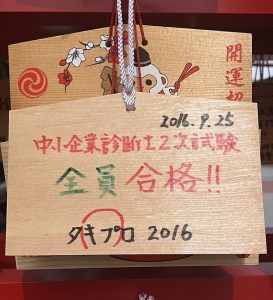 開運切
2016.9.25
中小企業診断士2次試験
全員 合格!!
タキプロ 2016